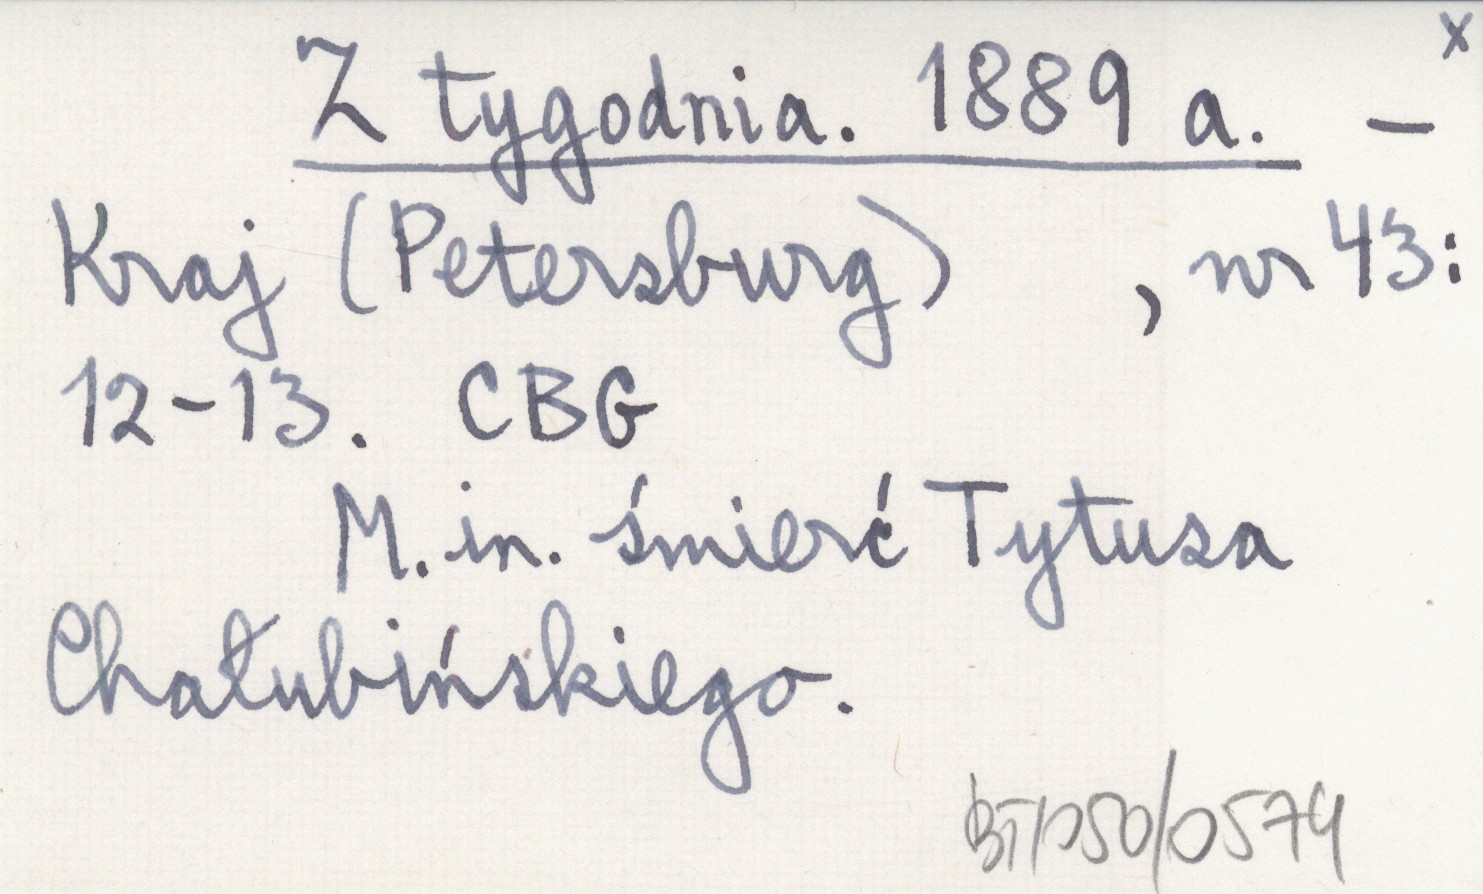 x
Z tygodnia. 1889 a. –
Kraj (Petersburg) , nr 43:
12-13. CBG
M. in. śmierć Tytusa
Chałubińskiego.
BT/050/0574